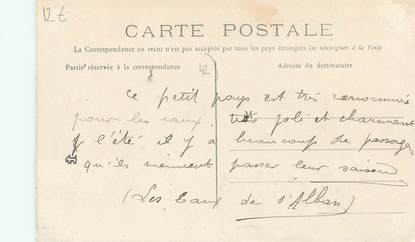 12 €
CARTE POSTALE
La Correspondance au recto n'est pas acceptée par tous les pays étrangers (se renseigner à la Poste
Partie réservée à la correspondance
Adresse du destinataire
Ce petit pays est très renommé
pour les eaux, très joli et charmant
l'été il y à beaucoup de passagers
qu'ils viennent passer leur saison
(Les Eaux de St Alban)